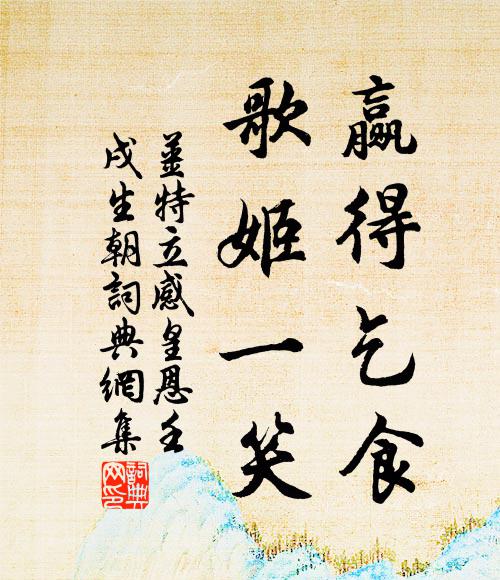 赢得乞食
歌姬一笑
姜特立感皇恩壬
戌生朝詞典網集
詞典
网印